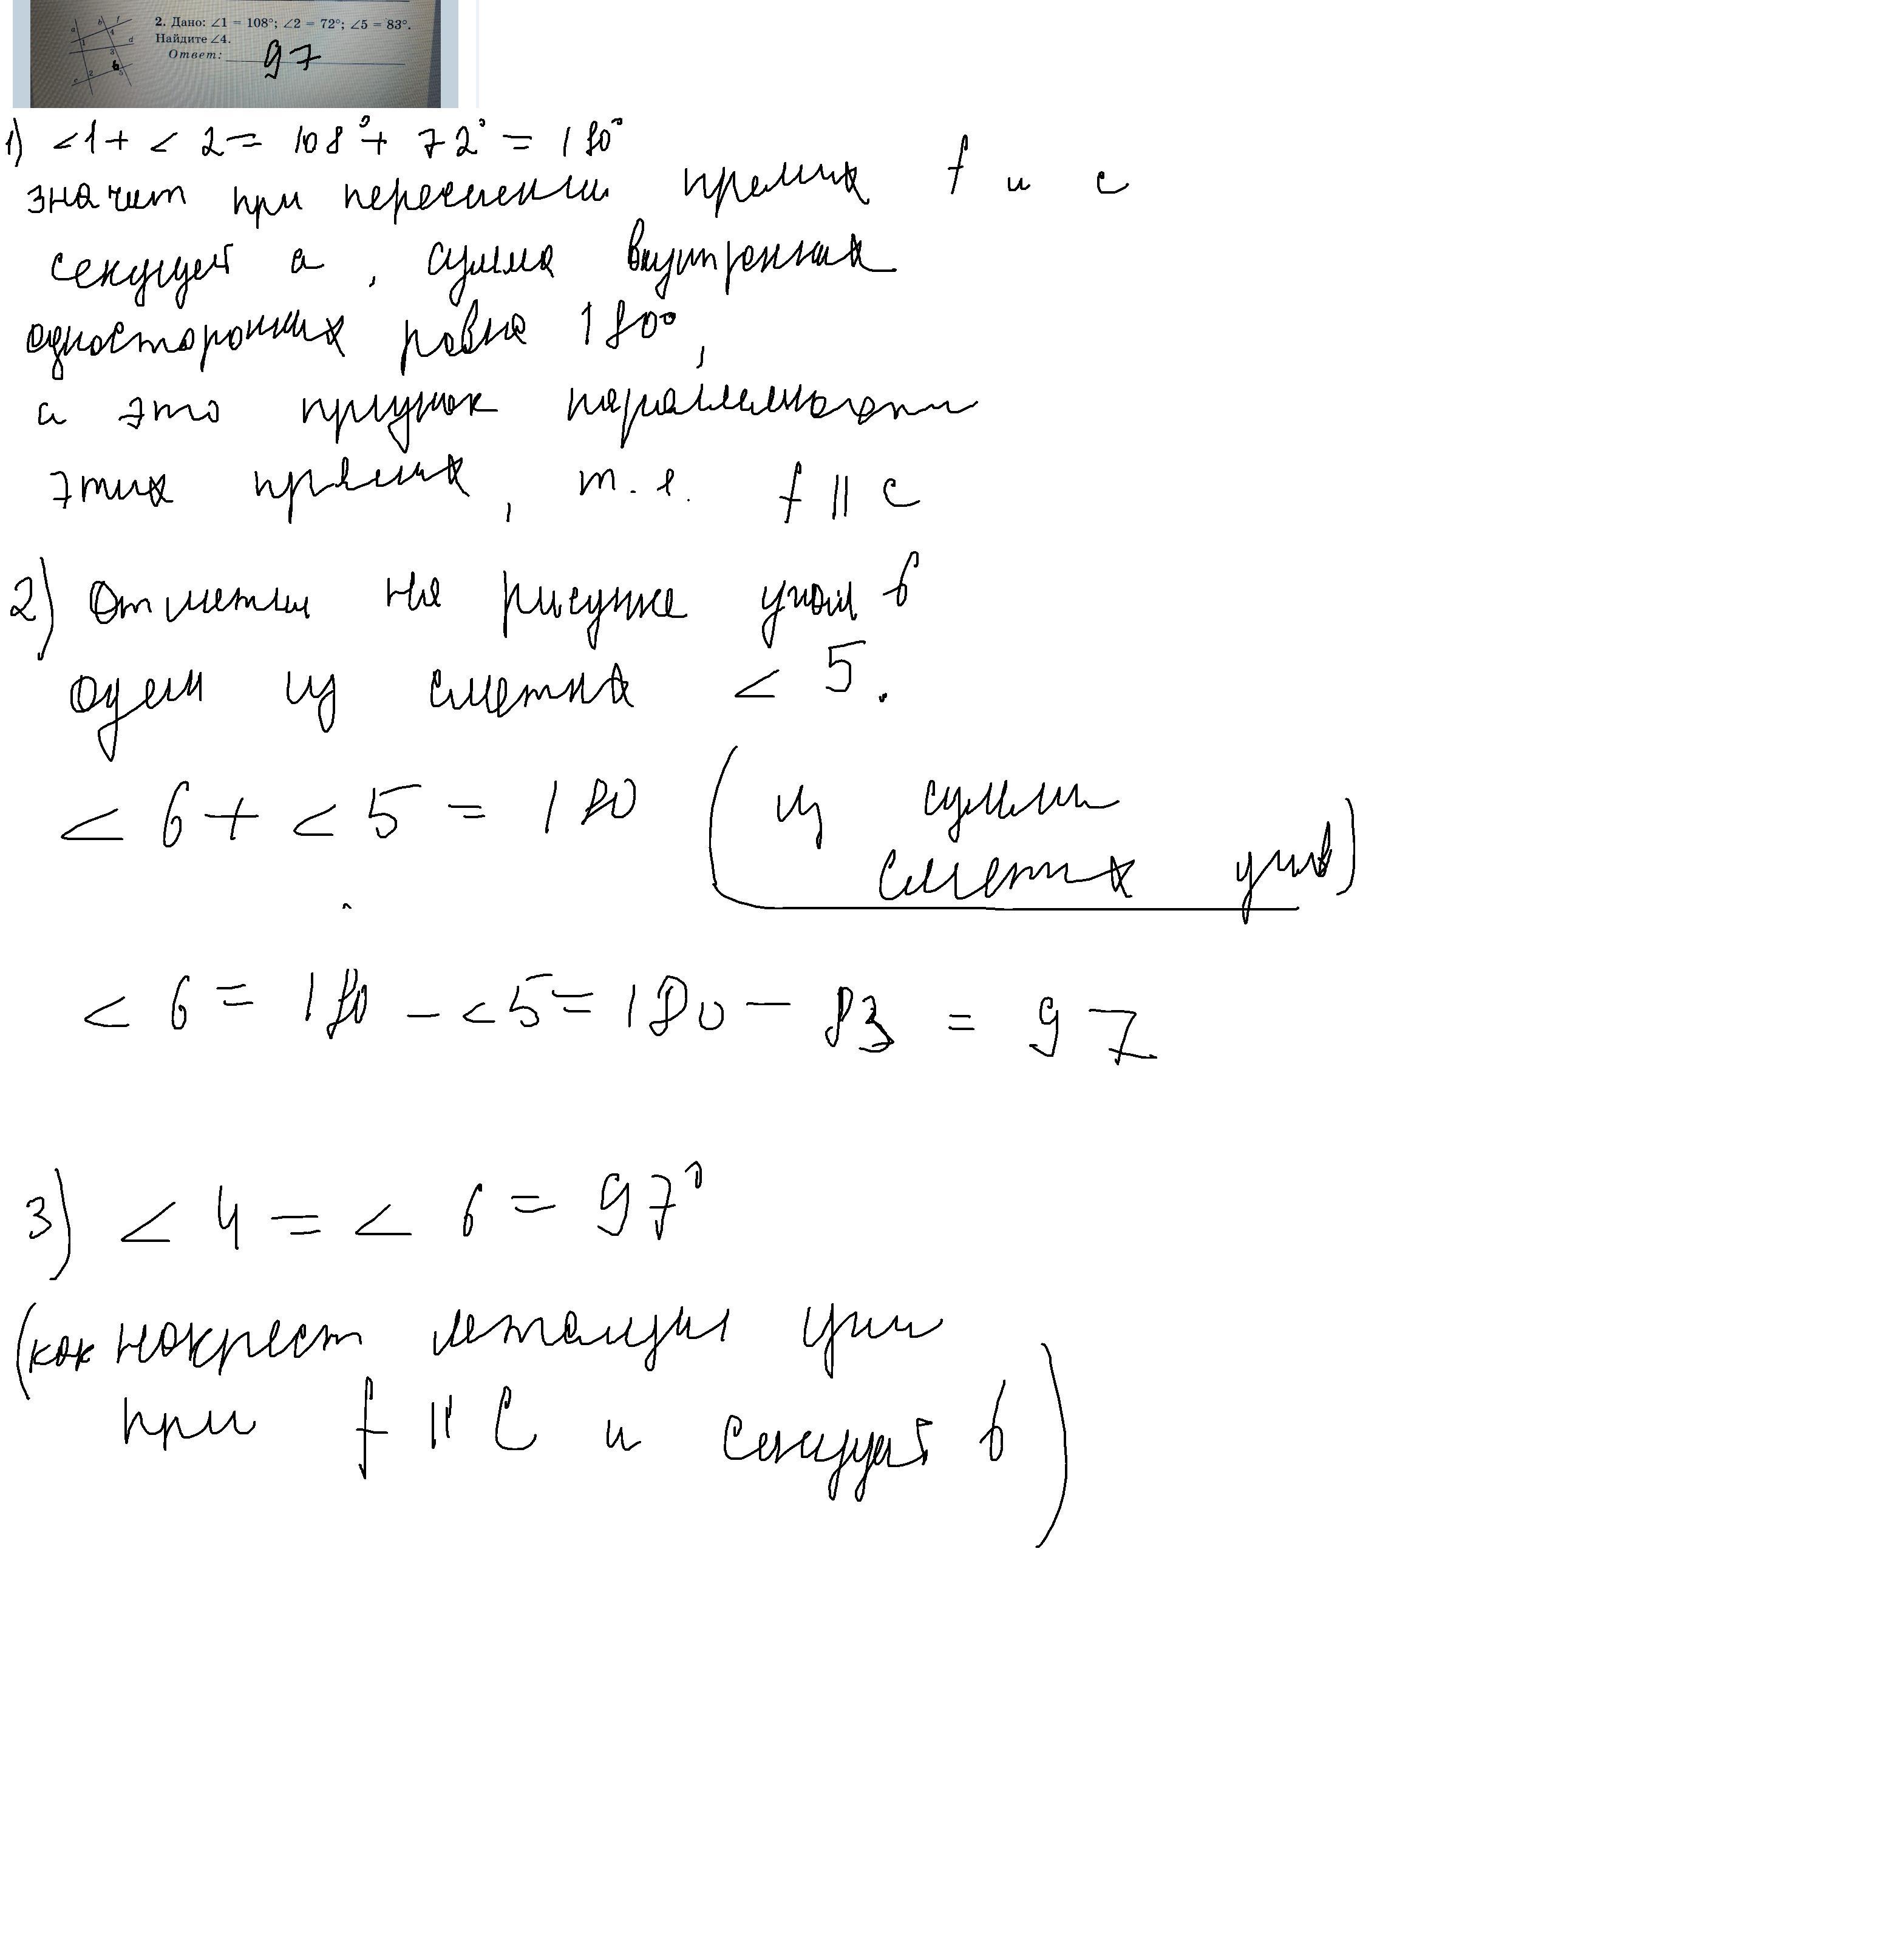 2. Дано: ∠1 = 108°; ∠2 = 72°; ∠5 = 83°.
Найдите ∠4.
Ответ: 97
1) <1 + < 2 = 108° + 72° = 180°
значит при пересечении прямых f и c
секущей a, сумма внутренних
односторонних равна 180°,
а это признак параллельности
этих прямых, т.е. f || c
2) Отметим на рисунке угол 6
один из смежных < 5.
< 6 + < 5 = 180 (из суммы
смежных углов)
< 6 = 180 - < 5 = 180 - 83 = 97
3) < 4 = < 6 = 97°
(как накрест лежащие углы
при f || c и секущей b)